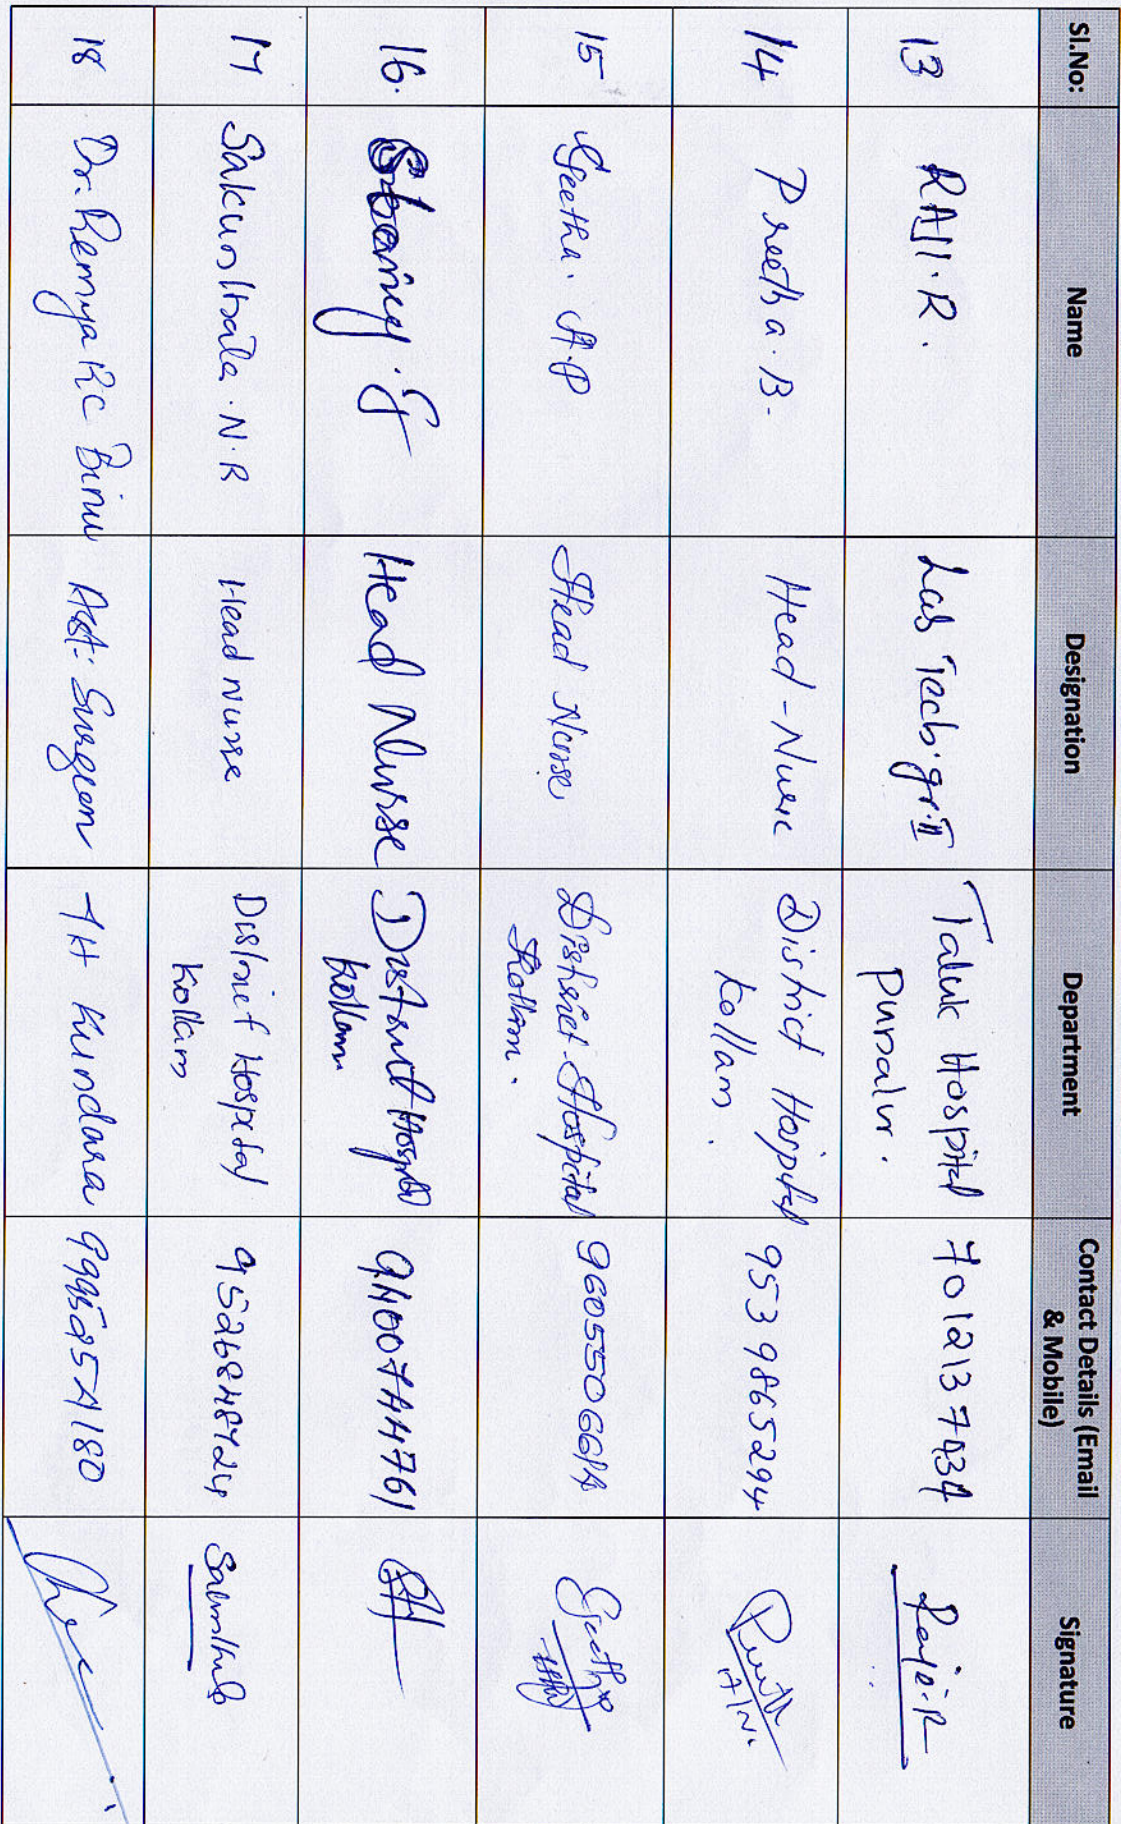 Sl.No: Name Designation Department Contact Details (Email & Mobile) Signature
13 RAJI.R. Lab Tech.gr.II Taluk Hospital Punalur. 7012137434 Raji.R
14 Preetha.B. Head-Nurse District Hospital Kollam. 9539865294
15 Geetha.A.P Head Nurse District Hospital Kollam. 9605550614 Geetha
16. Head Nurse District Hospital Kollam 9400744761
17 Sakunthala.N.R Head nurse District Hospital Kollam 9526848724
18 Dr. Remya Rc Binu Asst: Surgeon TH Kundara 9995254180